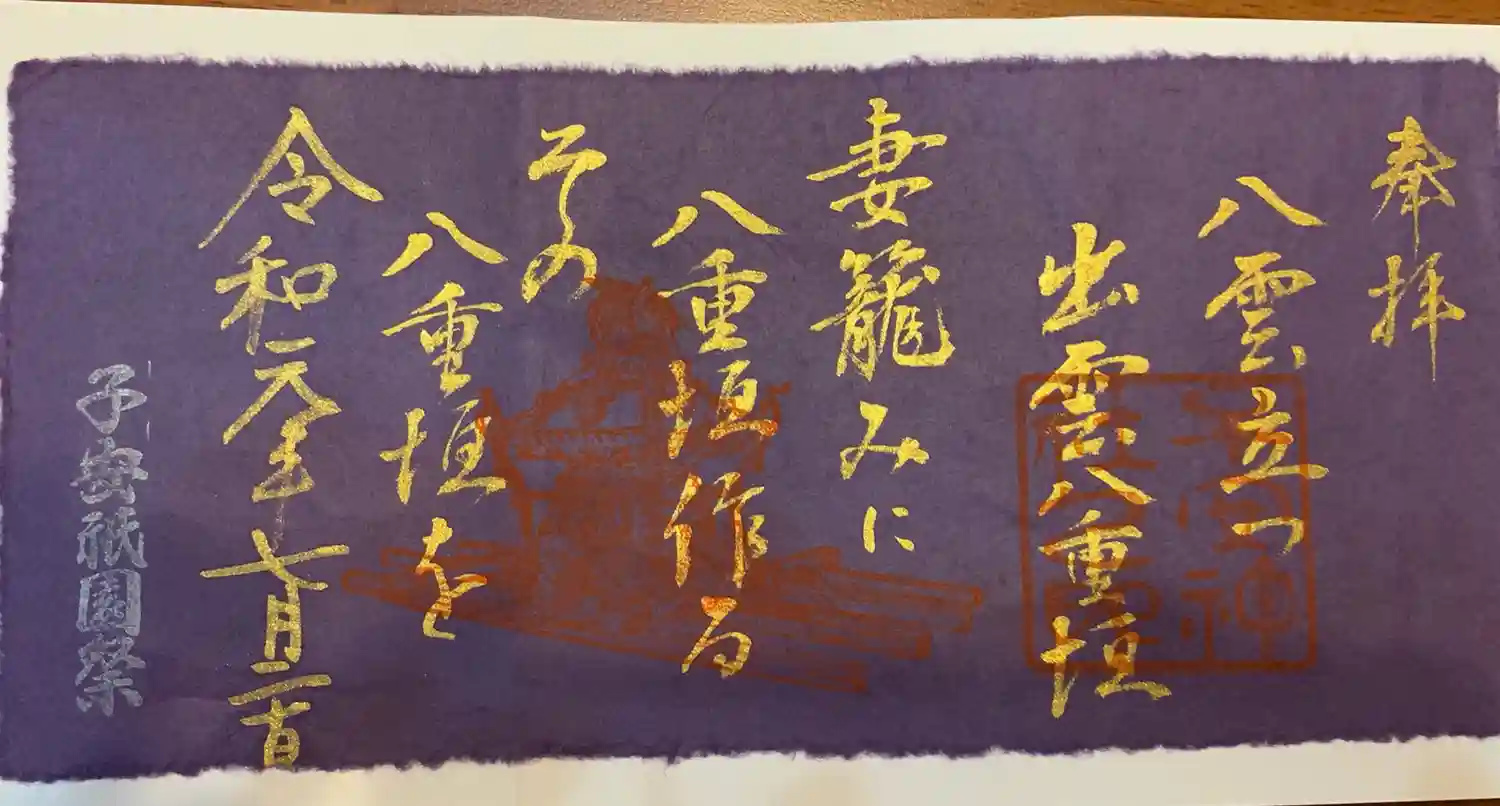 奉拝
八雲立つ
出雲八重垣
妻籠みに
八重垣作る
その
八重垣を
令和元年七月二十日
子安祇園祭